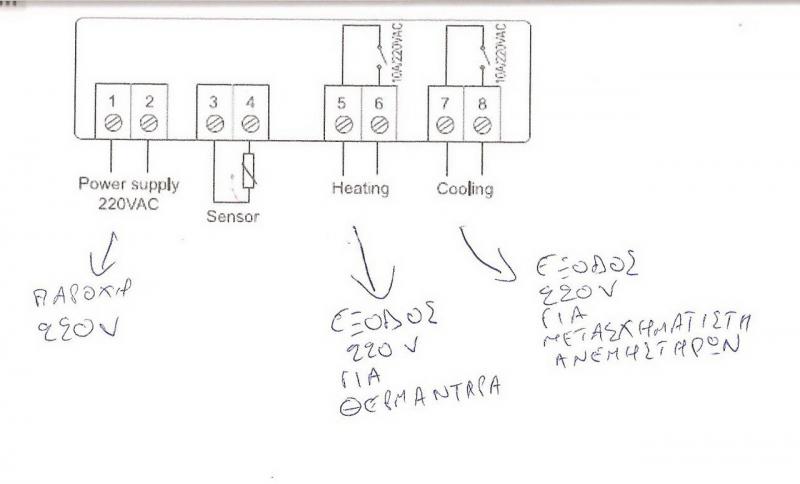 10A/220VAC
10A/220VAC
1 2 3 4 5 6 7 8
Power supply
220VAC
Sensor
Heating
Cooling
ΠΑΡΟΧΗ
220V
ΕΞΟΔΟΣ
220 V
ΓΙΑ
ΘΕΡΜΑΝΤΑΡΑ
ΕΞΟΔΟΣ
220V
ΓΙΑ
ΜΕΤΑΣΧΗΜΑΤΙΣΤΗ
ΑΝΕΜΗΣΤΗΡΩΝ